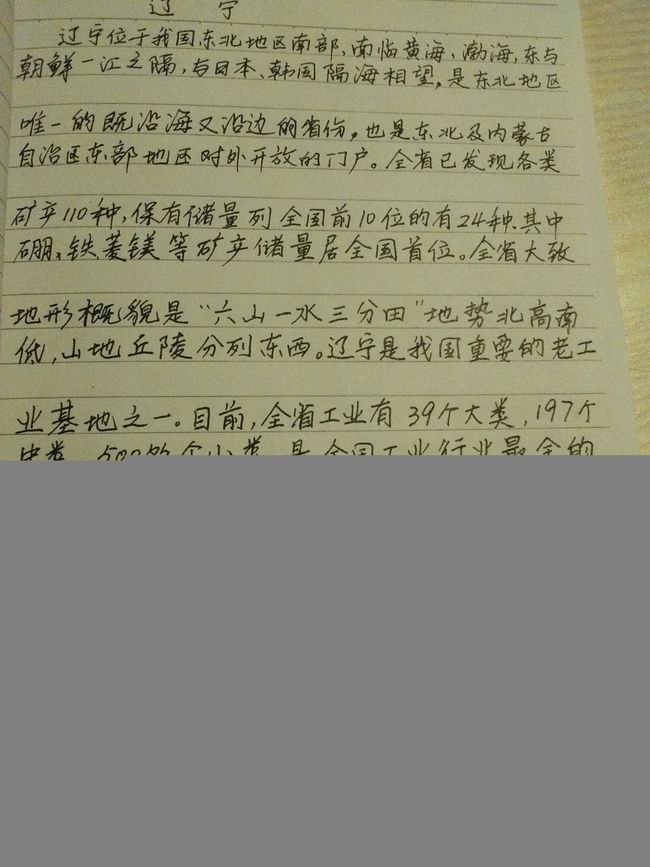 辽 宁
辽宁位于我国东北地区南部,南临黄海、渤海,东与
朝鲜一江之隔,与日本、韩国隔海相望,是东北地区
唯一的既沿海又沿边的省份,也是东北及内蒙古
自治区东部地区对外开放的门户。全省已发现各类
矿产110种,保有储量列全国前10位的有24种.其中
硼,铁,菱镁等矿产储量居全国首位。全省大致
地形概貌是“六山一水三分田”地势北高南
低,山地丘陵分列东西。辽宁是我国重要的老工
业基地之一。目前,全省工业有39个大类,197个
中类,500多个小类,是全国工业行业最全的